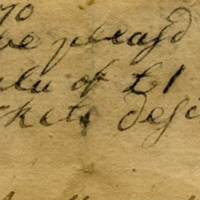 70
be pleas'd
valu of £1
ckets desi